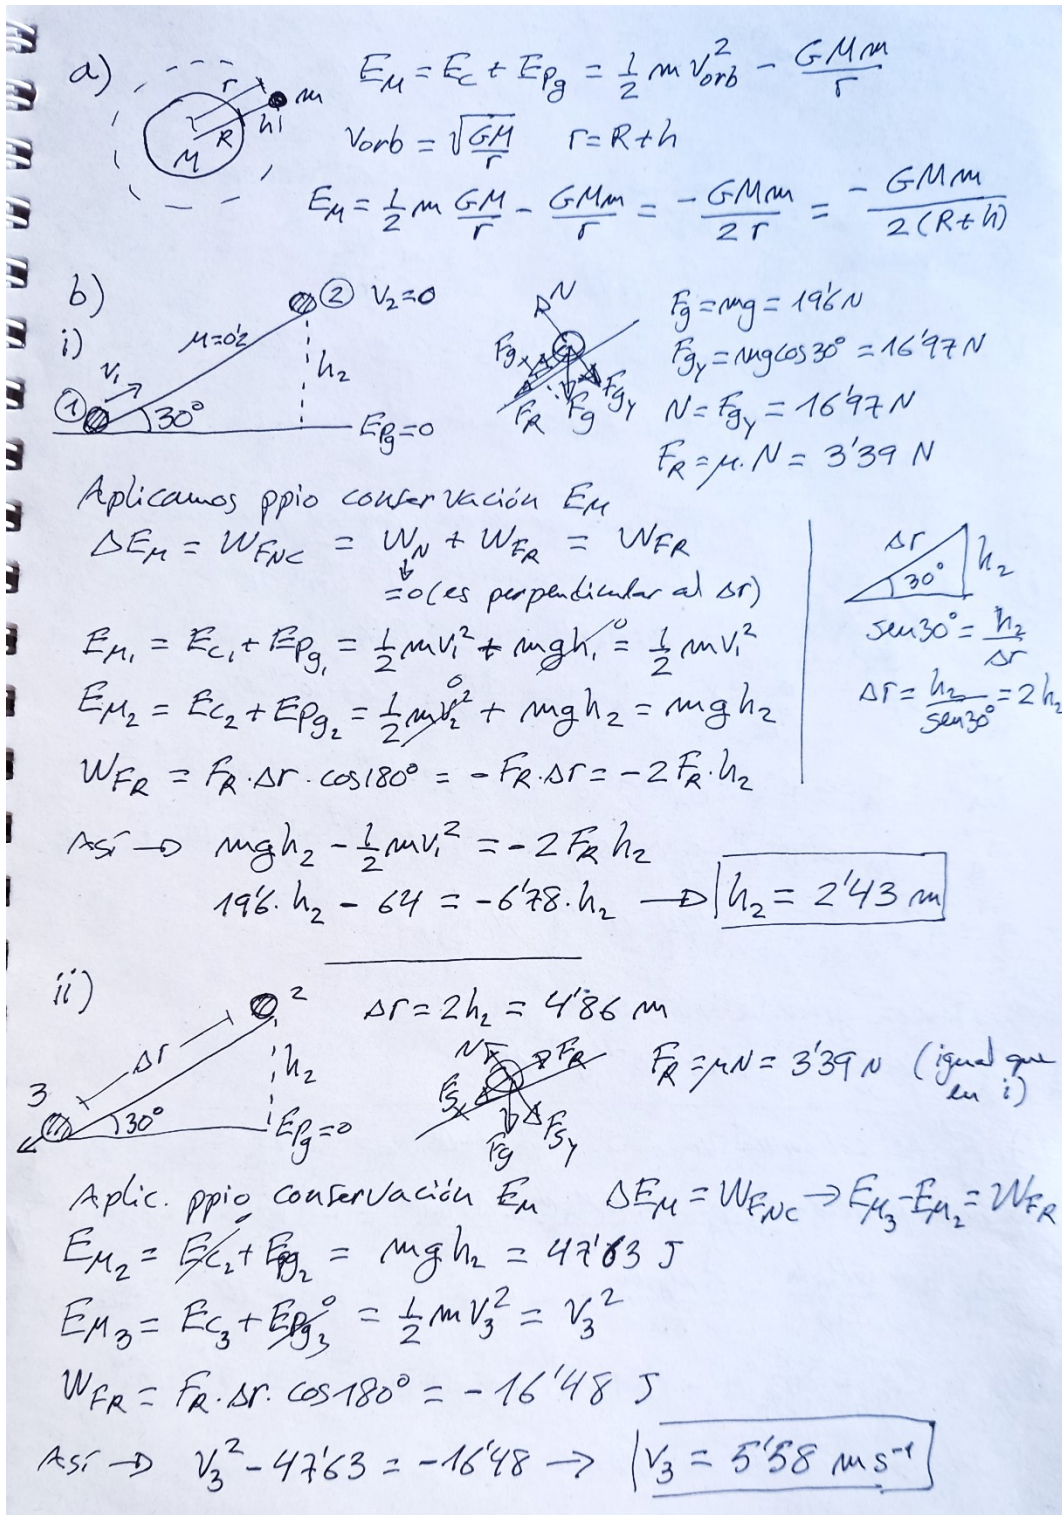 a) r m R h M
E_M = E_c + E_Pg = 1/2 m v_orb^2 - GMm/r
v_orb = √(GM/r) r = R+h
E_M = 1/2 m GM/r - GMm/r = -GMm/2r = -GMm/2(R+h)
b)
i) ① v_1 30° μ=0'2 ② v_2=0 h_2 E_Pg=0
N F_gx F_R F_g F_gy
F_g = mg = 19'6 N
F_gy = mg cos 30° = 16'97 N
N = F_gy = 16'97 N
F_R = μ·N = 3'39 N
Aplicamos ppio conservación E_M
ΔE_M = W_FNC = W_N + W_FR = W_FR
↓
=0 (es perpendicular al Δr)
Δr h_2 30°
sen 30° = h_2/Δr
Δr = h_2/sen 30° = 2h_2
E_M1 = E_c1 + E_Pg1 = 1/2 m v_1^2 + mgh_1 0 = 1/2 m v_1^2
E_M2 = E_c2 + E_Pg2 = 1/2 m v_2^2 0 + mgh_2 = mgh_2
W_FR = F_R·Δr·cos 180° = -F_R·Δr = -2F_R·h_2
Así → mgh_2 - 1/2 m v_1^2 = -2F_R h_2
19'6·h_2 - 64 = -6'78·h_2 → h_2 = 2'43 m
ii) 3 Δr 2 h_2 30° E_Pg=0
Δr = 2h_2 = 4'86 m
N F_R F_gx F_g F_gy
F_R = μN = 3'39 N (igual que
en i)
Aplic. ppio conservación E_M ΔE_M = W_FNC → E_M3 - E_M2 = W_FR
E_M2 = E_c2 + E_Pg2 = mgh_2 = 47'63 J
E_M3 = E_c3 + E_Pg3 0 = 1/2 m v_3^2 = v_3^2
W_FR = F_R·Δr·cos 180° = -16'48 J
Así → v_3^2 - 47'63 = -16'48 → v_3 = 5'58 m s^-1